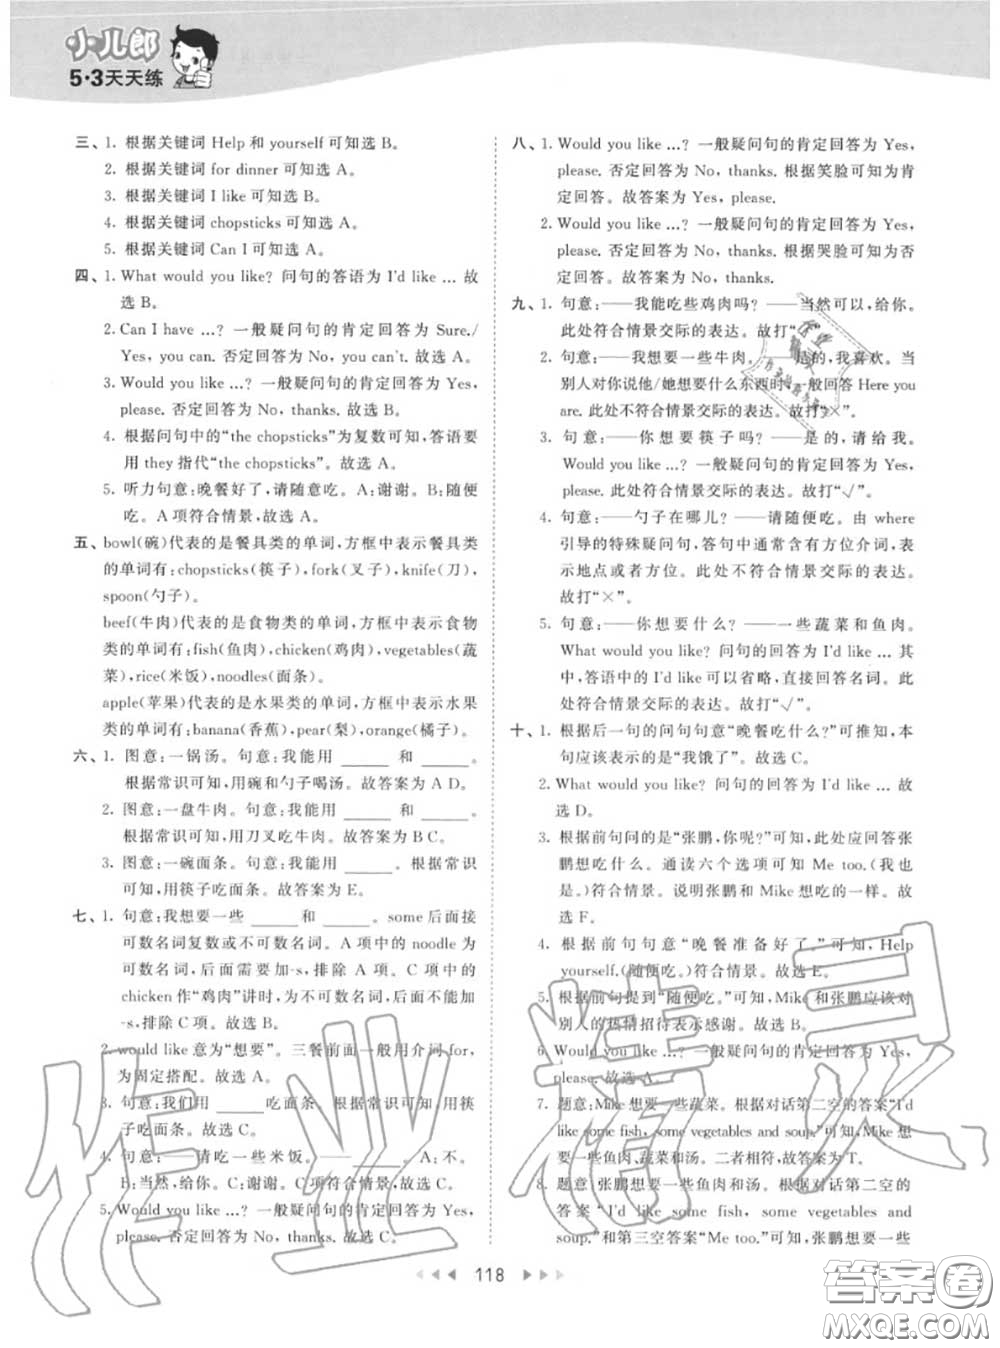 小儿郎
5·3天天练
三、1. 根据关键词 Help 和 yourself 可知选 B。
2. 根据关键词 for dinner 可知选 A。
3. 根据关键词 I like 可知选 B。
4. 根据关键词 chopsticks 可知选 A。
5. 根据关键词 Can I 可知选 A。
四、1. What would you like? 问句的答语为 I'd like … 故
选 B。
2. Can I have …? 一般疑问句的肯定回答为 Sure./
Yes, you can. 否定回答为 No, you can't. 故选 A。
3. Would you like …? 一般疑问句的肯定回答为 Yes,
please. 否定回答为 No, thanks. 故选 B。
4. 根据问句中的“the chopsticks”为复数可知,答语要
用 they 指代“the chopsticks”。故选 A。
5. 听力句意:晚餐好了,请随意吃。A:谢谢。B:随便
吃。A 项符合情景,故选 A。
五、bowl(碗)代表的是餐具类的单词,方框中表示餐具类
的单词有:chopsticks(筷子),fork(叉子),knife(刀),
spoon(勺子)。
beef(牛肉)代表的是食物类的单词,方框中表示食物
类的单词有:fish(鱼肉),chicken(鸡肉),vegetables(蔬
菜),rice(米饭),noodles(面条)。
apple(苹果)代表的是水果类的单词,方框中表示水果
类的单词有:banana(香蕉),pear(梨),orange(橘子)。
六、1. 图意:一锅汤。句意:我能用 ______ 和 ______。
根据常识可知,用碗和勺子喝汤。故答案为 A D。
2. 图意:一盘牛肉。句意:我能用 ______ 和 ______。
根据常识可知,用刀叉吃牛肉。故答案为 B C。
3. 图意:一碗面条。句意:我能用 ______。根据常识
可知,用筷子吃面条。故答案为 E。
七、1. 句意:我想要一些 ______ 和 ______。some 后面接
可数名词复数或不可数名词。A 项中的 noodle 为
可数名词,后面需要加-s,排除 A 项。C 项中的
chicken 作“鸡肉”讲时,为不可数名词,后面不能加
-s,排除 C 项。故选 B。
2. would like 意为“想要”。三餐前面一般用介词 for,
为固定搭配。故选 A。
3. 句意:我们用 ______ 吃面条。根据常识可知,用筷
子吃面条。故选 A。
4. 句意:——请吃一些米饭。——______。A:不。
B:当然,给你。C:谢谢。C 项符合情景,故选 C。
5. Would you like …? 一般疑问句的肯定回答为 Yes,
please. 否定回答为 No, thanks. 故选 A。
八、1. Would you like …? 一般疑问句的肯定回答为 Yes,
please. 否定回答为 No, thanks. 根据笑脸可知为肯
定回答。故答案为 Yes, please.
2. Would you like …? 一般疑问句的肯定回答为 Yes,
please. 否定回答为 No, thanks. 根据哭脸可知为否
定回答。故答案为 No, thanks.
九、1. 句意:——我能吃些鸡肉吗? ——当然可以,给你。
此处符合情景交际的表达。故打“√”。
2. 句意:——我想要一些牛肉。——是的,我喜欢。当
别人对你说他/她想要什么东西时,一般回答 Here you
are. 此处不符合情景交际的表达。故打“×”。
3. 句意:——你想要筷子吗? ——是的,请给我。
Would you like …? 一般疑问句的肯定回答为 Yes,
please. 此处符合情景交际的表达。故打“√”。
4. 句意:——勺子在哪儿? ——请随便吃。由 where
引导的特殊疑问句,答句中通常含有方位介词,表
示地点或者方位。此处不符合情景交际的表达。
故打“×”。
5. 句意:——你想要什么? ——一些蔬菜和鱼肉。
What would you like? 问句的回答为 I'd like … 其
中,答语中的 I'd like 可以省略,直接回答名词。此
处符合情景交际的表达。故打“√”。
十、1. 根据后一句的问句句意“晚餐吃什么?”可推知,本
句应该表示的是“我饿了”。故选 C。
2. What would you like? 问句的回答为 I'd like … 故
选 D。
3. 根据前句问的是“张鹏,你呢?”可知,此处应回答张
鹏想吃什么。通读六个选项可知 Me too.(我也
是。)符合情景。说明张鹏和 Mike 想吃的一样。故
选 F。
4. 根据前句句意“晚餐准备好了。”可知,Help
yourself.(随便吃。)符合情景。故选 E。
5. 根据前句提到“随便吃。”可知,Mike 和张鹏应该对
别人的热情招待表示感谢。故选 B。
6. Would you like …? 一般疑问句的肯定回答为 Yes,
please. 故选 A。
7. 题意:Mike 想要一些蔬菜。根据对话第二空的答案“I'd
like some fish, some vegetables and soup.”可知,Mike 想
要一些鱼肉、蔬菜和汤。二者相符,故答案为 T。
8. 题意:张鹏想要一些鱼肉和汤。根据对话第二空的
答案“I'd like some fish, some vegetables and
soup.”和第三空答案“Me too.”可知,张鹏想要一些
118
作业精灵
答案圈
MXQE.COM